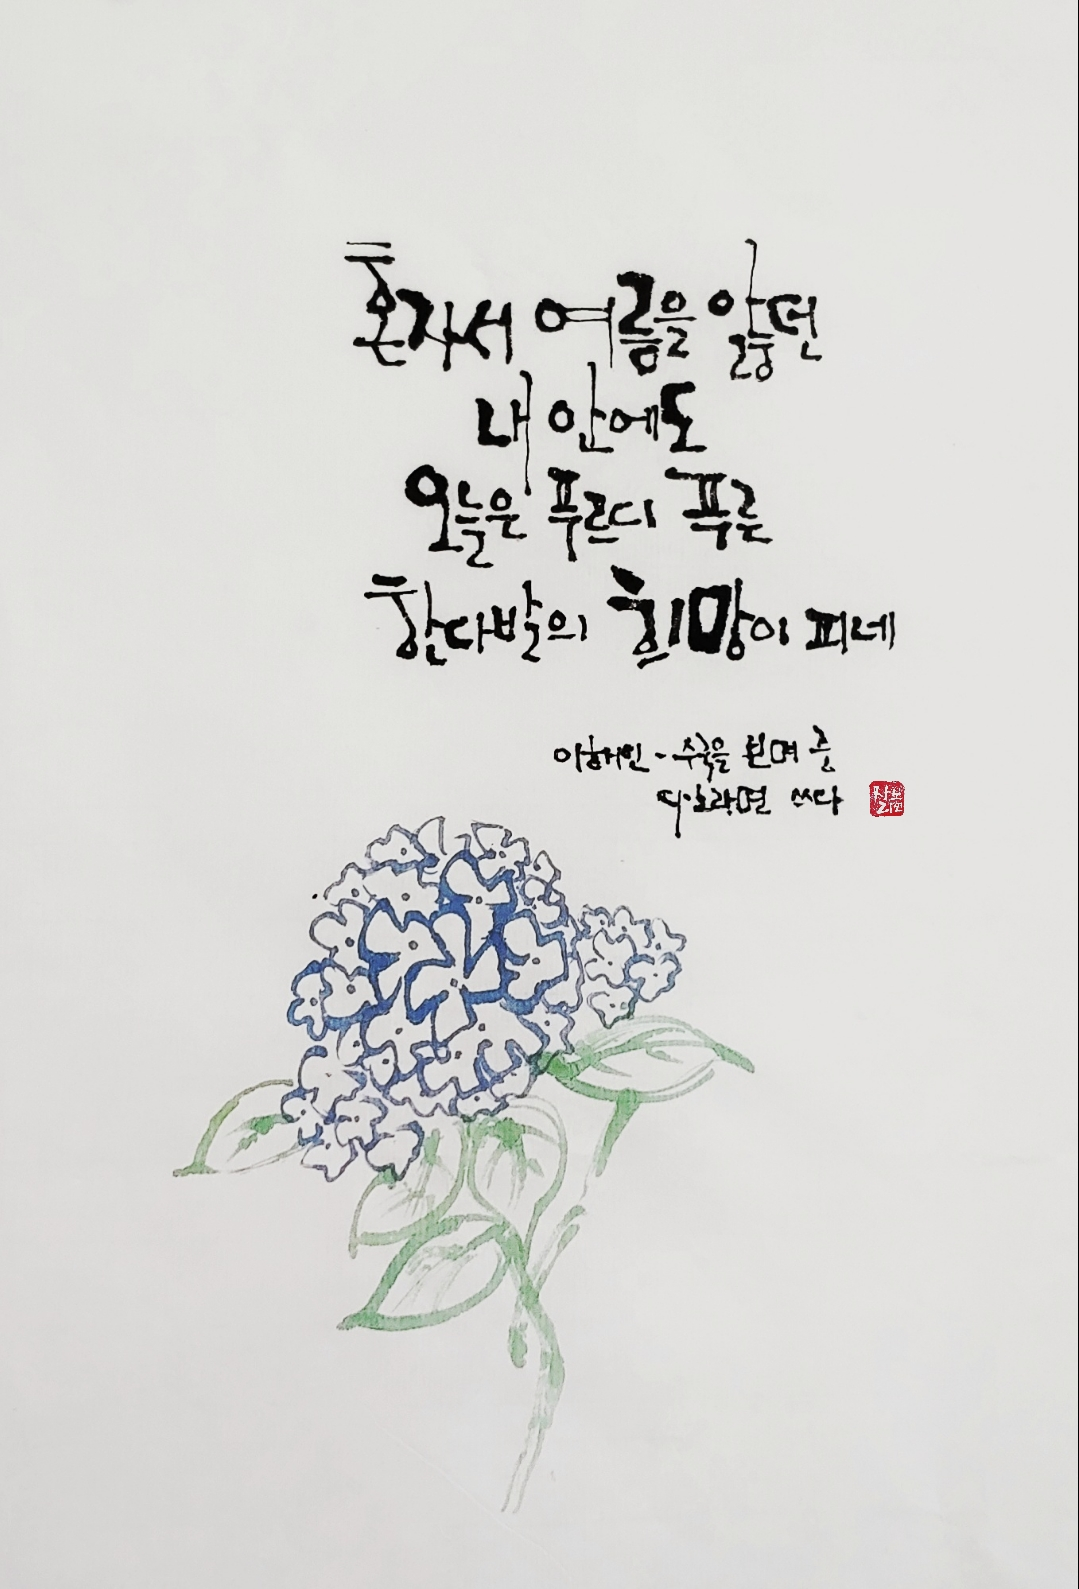 혼자서 여름을 앓던
내 안에도
오늘은 푸르디 푸른
한다발의 희망이 피네
이해인 - 수국을 보며 중
쓰다